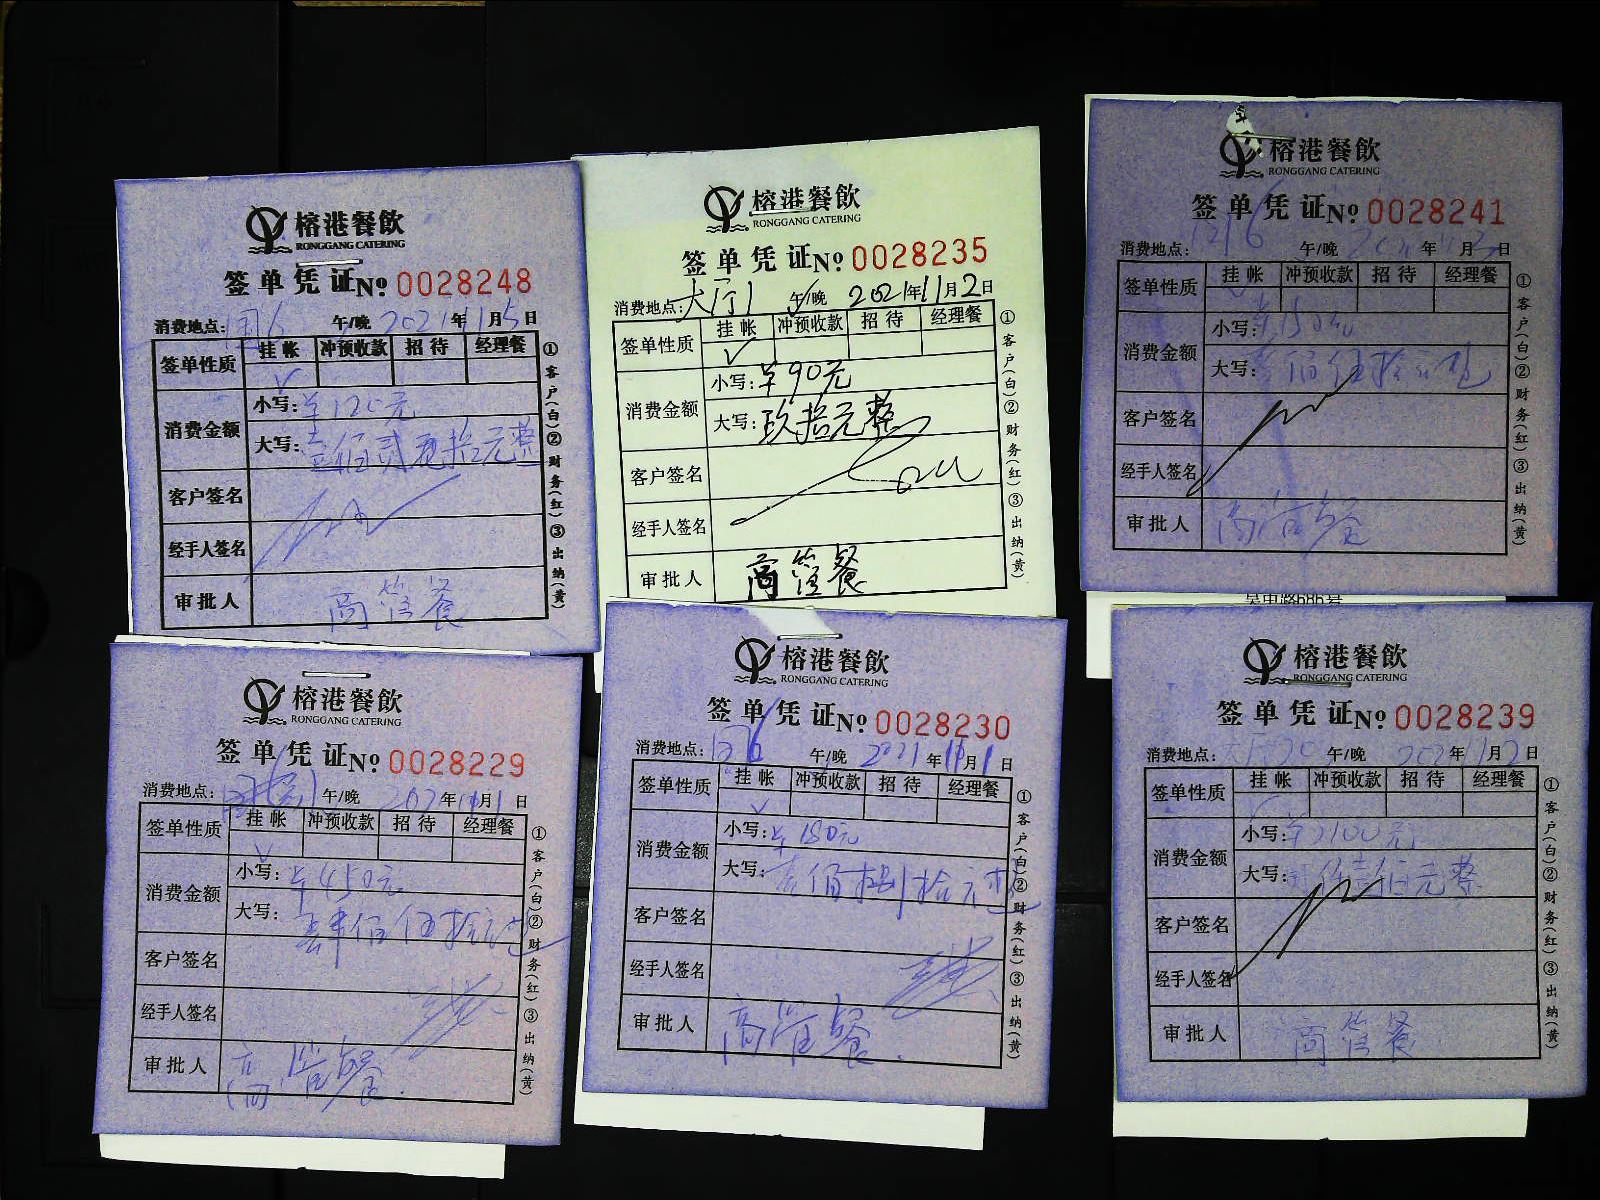 榕港餐飲
RONGGANG CATERING
签单凭证№ 0028248
消费地点: 午/晚 2021年11月5日
签单性质 挂帐 冲预收款 招待 经理餐
✓
消费金额 小写: 120元
大写: 壹佰贰拾元整
客户签名
经手人签名
审批人 商管餐
①客户(白)②财务(红)③出纳(黄)
榕港餐飲
RONGGANG CATERING
签单凭证№ 0028235
消费地点: 大厅1 午/晚 2021年11月2日
签单性质 挂帐 冲预收款 招待 经理餐
✓
消费金额 小写: 90元
大写: 玖拾元整
客户签名
经手人签名
审批人 商管餐
①客户(白)②财务(红)③出纳(黄)
榕港餐飲
RONGGANG CATERING
签单凭证№ 0028241
消费地点: 午/晚 年 月 日
签单性质 挂帐 冲预收款 招待 经理餐
消费金额 小写: 150元
大写: 壹佰伍拾元整
客户签名
经手人签名
审批人 商管餐
①客户(白)②财务(红)③出纳(黄)
吴中路686号
榕港餐飲
RONGGANG CATERING
签单凭证№ 0028229
消费地点: 午/晚 202 年11月1日
签单性质 挂帐 冲预收款 招待 经理餐
✓
消费金额 小写: 450元
大写: 肆佰伍拾元整
客户签名
经手人签名
审批人 商管餐
①客户(白)②财务(红)③出纳(黄)
榕港餐飲
RONGGANG CATERING
签单凭证№ 0028230
消费地点: 午/晚 2021年11月1日
签单性质 挂帐 冲预收款 招待 经理餐
✓
消费金额 小写: 180元
大写: 壹佰捌拾元整
客户签名
经手人签名
审批人 商管餐
①客户(白)②财务(红)③出纳(黄)
榕港餐飲
RONGGANG CATERING
签单凭证№ 0028239
消费地点: 午/晚 2021年11月2日
签单性质 挂帐 冲预收款 招待 经理餐
消费金额 小写:
大写: 佰元整
客户签名
经手人签名
审批人 商管餐
①客户(白)②财务(红)③出纳(黄)